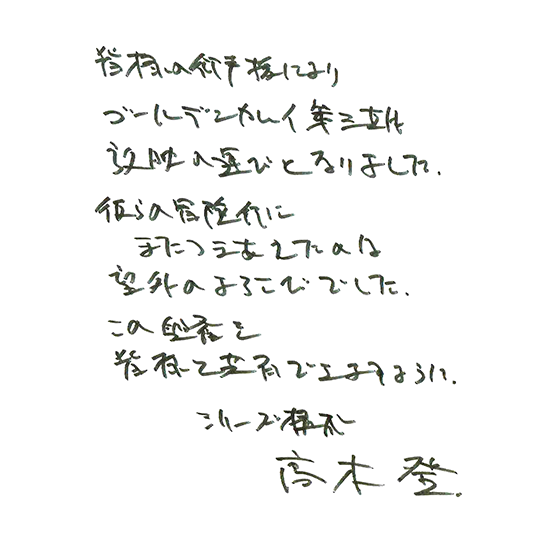 皆様の応援により
ゴールデンカムイ第三期
放映の運びとなりました。
彼らの冒険行に
またつきあえたのは
望外のよろこびでした。
この興奮を
皆様と共有できますように。
シリーズ構成
高木登